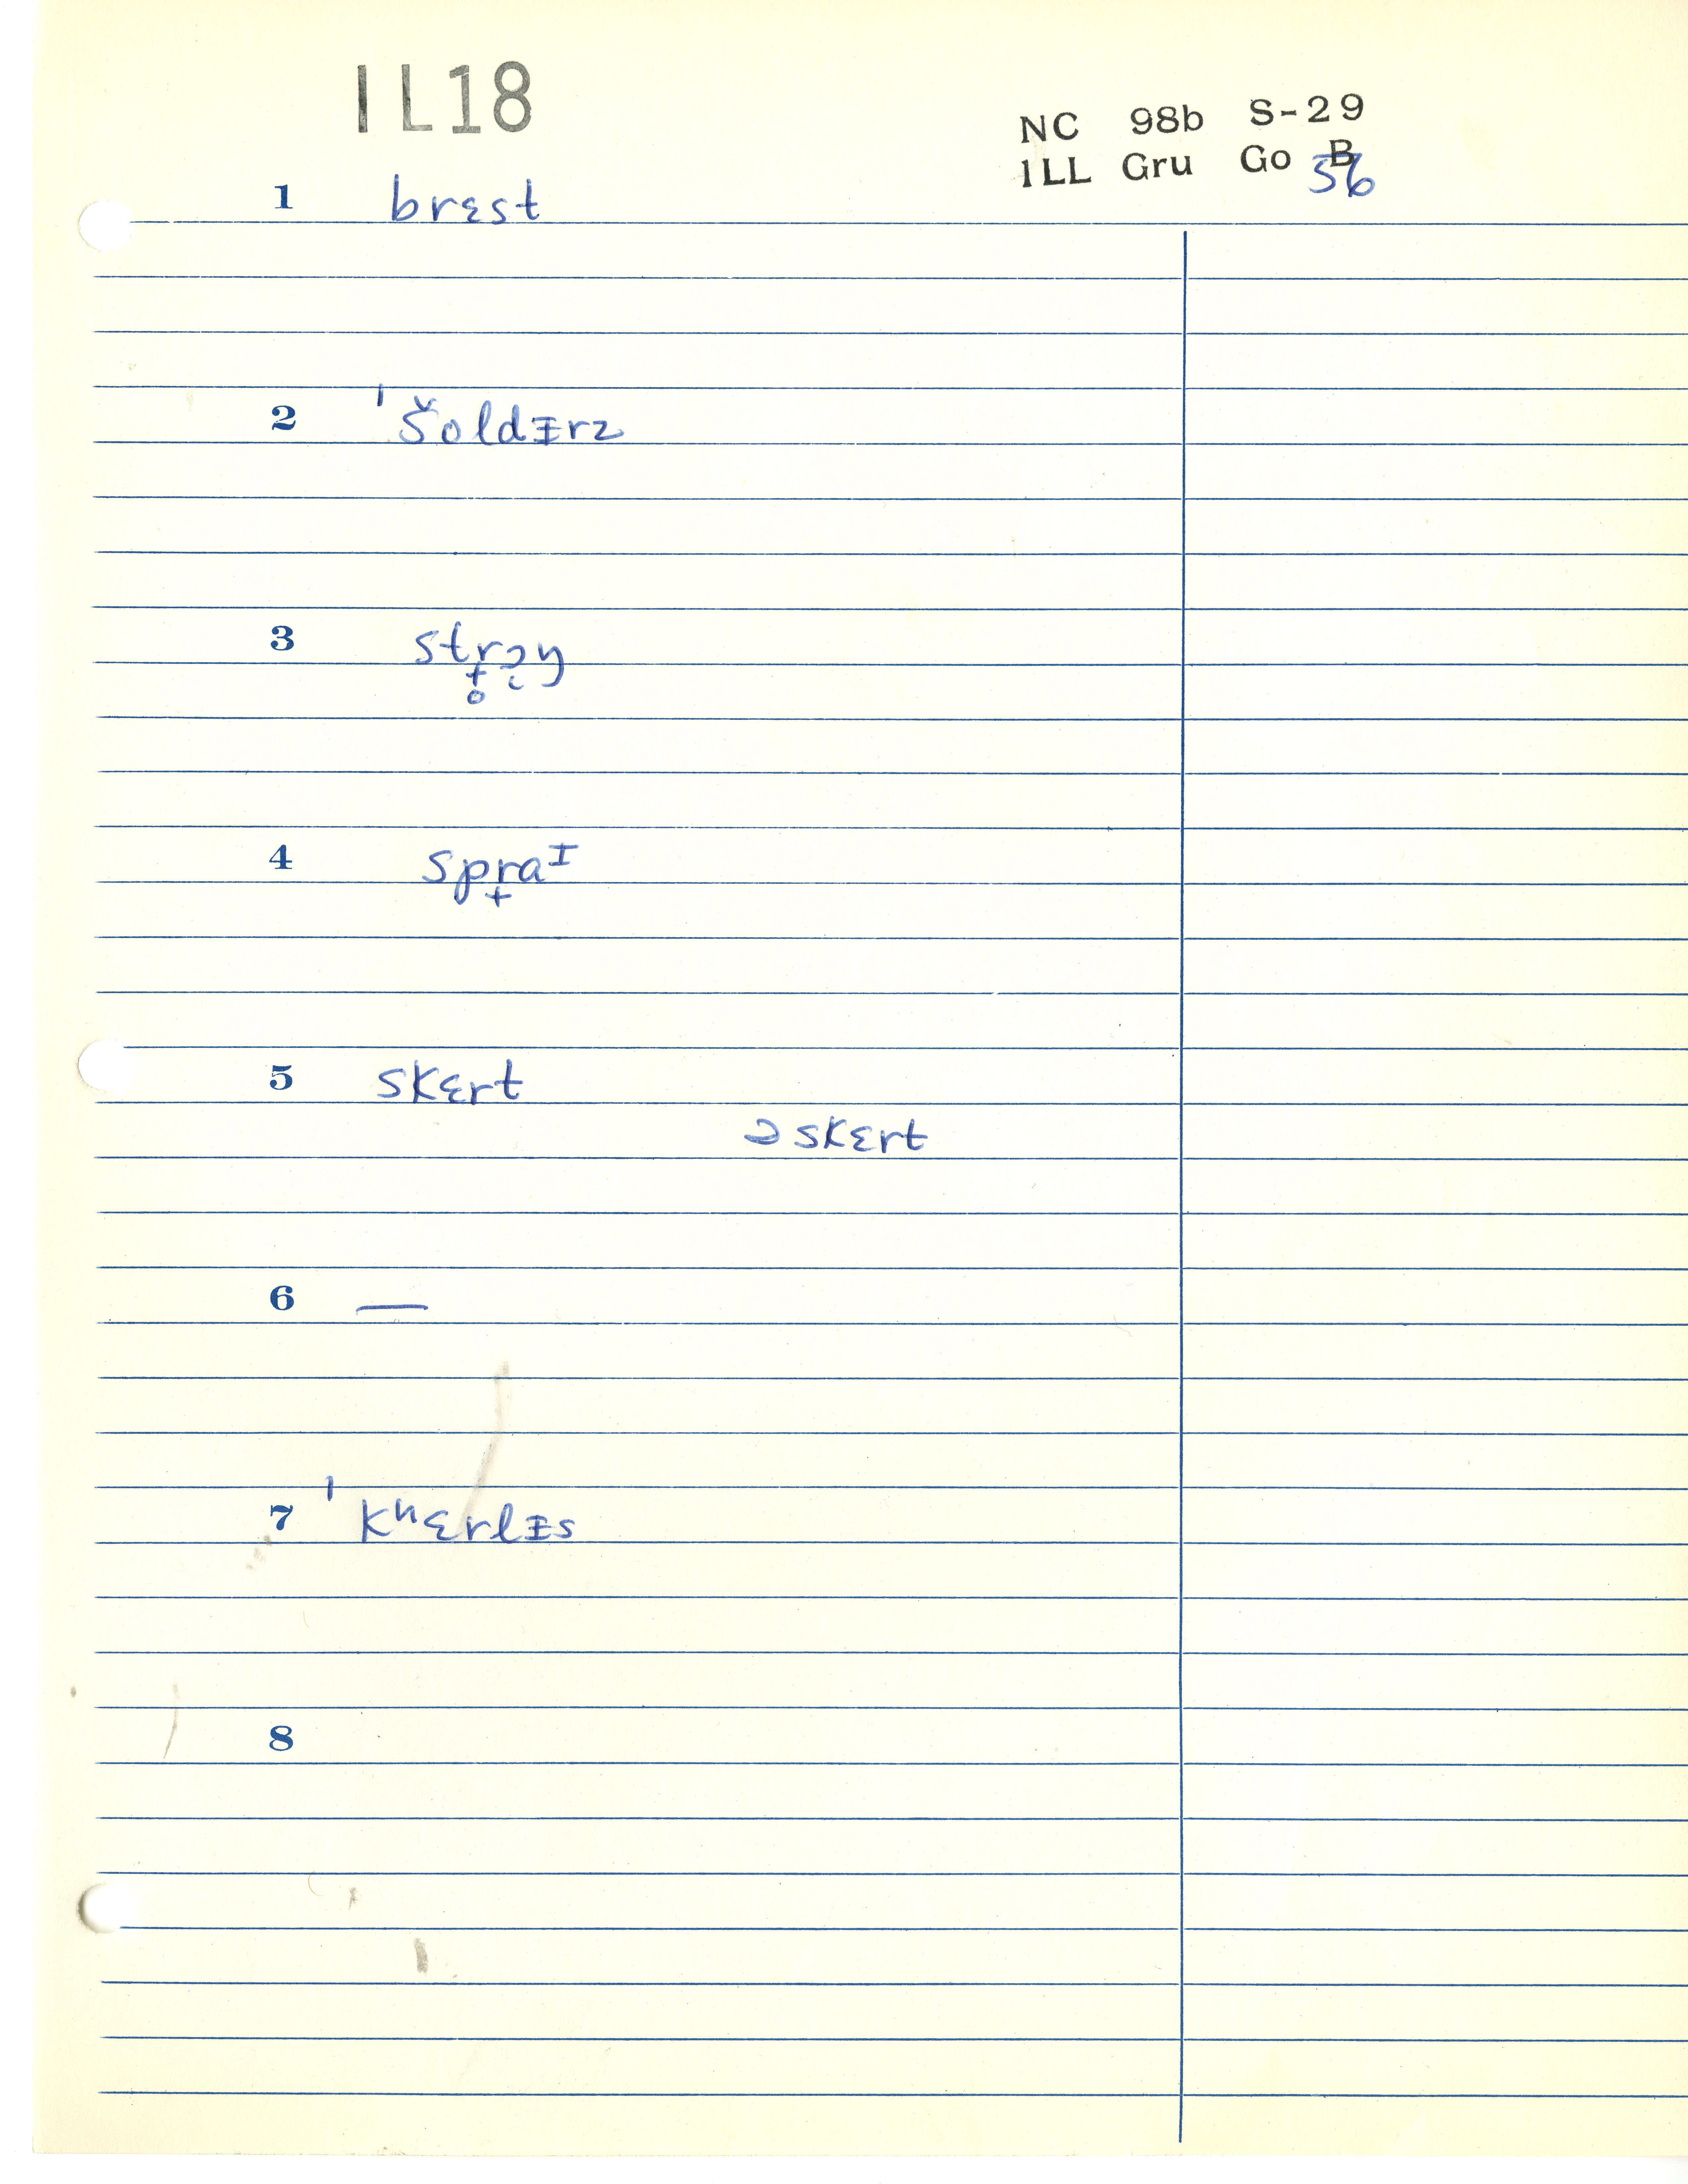 IL18
NC 98b S-29
ILL Gru Go B 56
1 brɛst
2 ˈšoldɪ̵rz
3 strɔy
4 spra̟ᶦ
5 skɛrt
ə skɛrt
6 —
7 ˈkʰɛrlɪ̵s
8